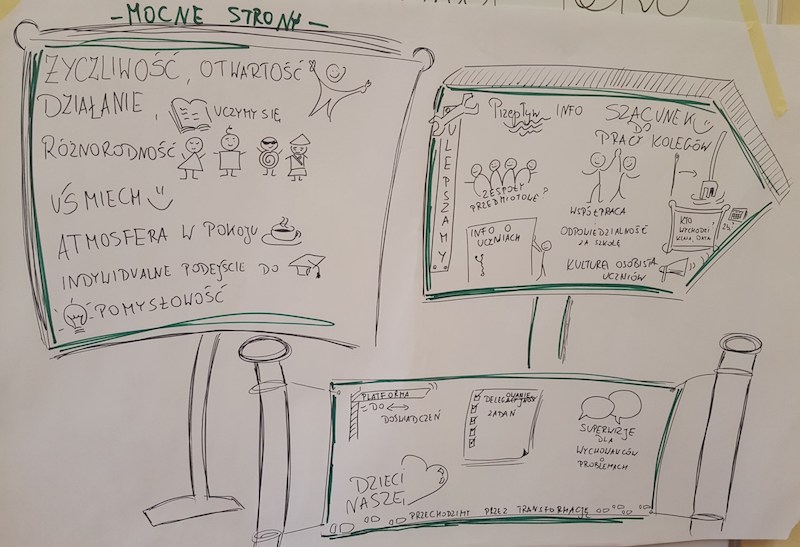 - MOCNE STRONY -
ŻYCZLIWOŚĆ, OTWARTOŚĆ
DZIAŁANIE,
UCZYMY SIĘ
RÓŻNORODNOŚĆ
UŚMIECH
ATMOSFERA W POKOJU
INDYWIDUALNE PODEJŚCIE DO
POMYSŁOWOŚĆ
ULEPSZAMY
Przepływ INFO
SZACUNEK
DO
PRACY KOLEGÓW
ZESPOŁY
PRZEDMIOTOWE?
WSPÓŁPRACA
INFO O
UCZNIACH
ODPOWIEDZIALNOŚĆ
ZA SZKOŁĘ
KULTURA OSOBISTA
UCZNIÓW
KTO
WYCHODZI
KLASA, DATA
PLATFORMA
DO
DOŚWIADCZEŃ
DELEGOWANIE
ZADAŃ
SUPERWIZJE
DLA
WYCHOWAWCÓW
O
PROBLEMACH
DZIECI
NASZE
PRZECHODZIMY PRZEZ TRANSFORMACJĘ